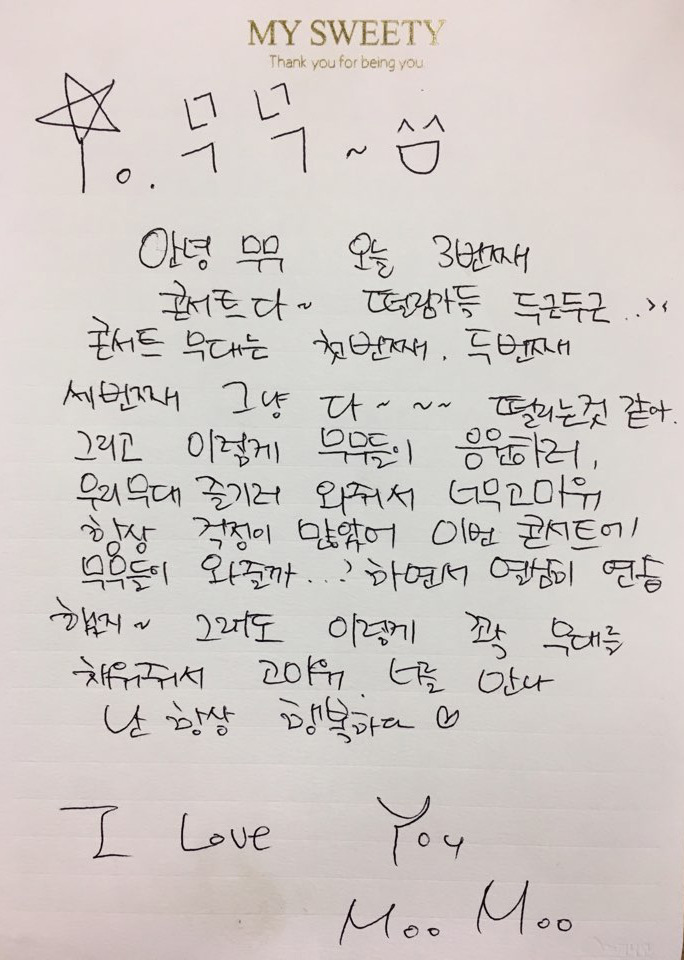 MY SWEETY
Thank you for being you
To. 무무~
안녕 무무 오늘 3번째
콘서트다~ 떨림가득 두근두근..><
콘서트 무대는 첫번째. 두번째
세번째 그냥 다~~~ 떨리는것 같아.
그리고 이렇게 무무들이 응원하러,
우리무대 즐기러 와줘서 너무고마워
항상 걱정이 많았어 이번 콘서트에
무무들이 와줄까...? 하면서 열심히 연습
했지~ 그래도 이렇게 꽉 무대를
채워줘서 고마워. 너를 만나
난 항상 행복하다♡
I Love You
Moo Moo